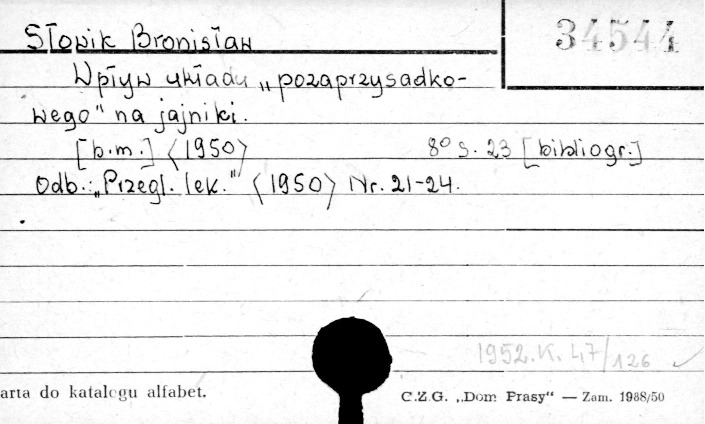 Słowik Bronisław
34544
Wpływ układu „pozaprzysadko-
wego" na jajniki.
[b.m.] <1950> 8° s. 23 [bibliogr.]
Odb.: „Przegl. lek." <1950> Nr. 21-24.
1952.K.47/126 ✓
arta do katalogu alfabet.
C.Z.G. „Dom Prasy“ — Zam. 1988/50